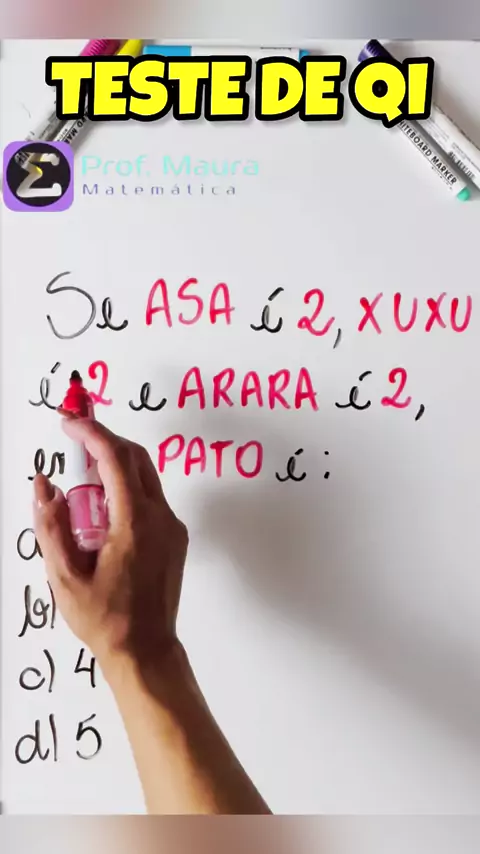 TESTE DE QI
Prof. Maura
Matemática
WHITEBOARD MARKER
Se ASA é 2, XUXU
é 2 e ARARA é 2,
PATO é:
c) 4
d) 5